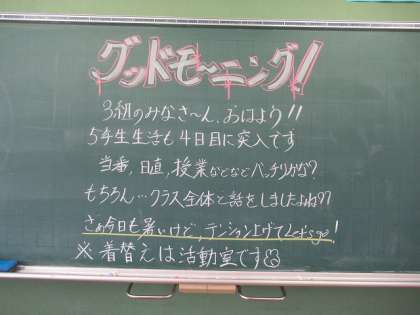 グッドモ～ニング!
3組のみなさ～ん、おはよう!!
5年生生活も4日目に突入です
当番、日直、授業などなどバッチリかな?
もちろん…クラス全体と話をしましたよね??
さぁ今日も暑いけど、テンション上げてLet's go!
※着替えは活動室です